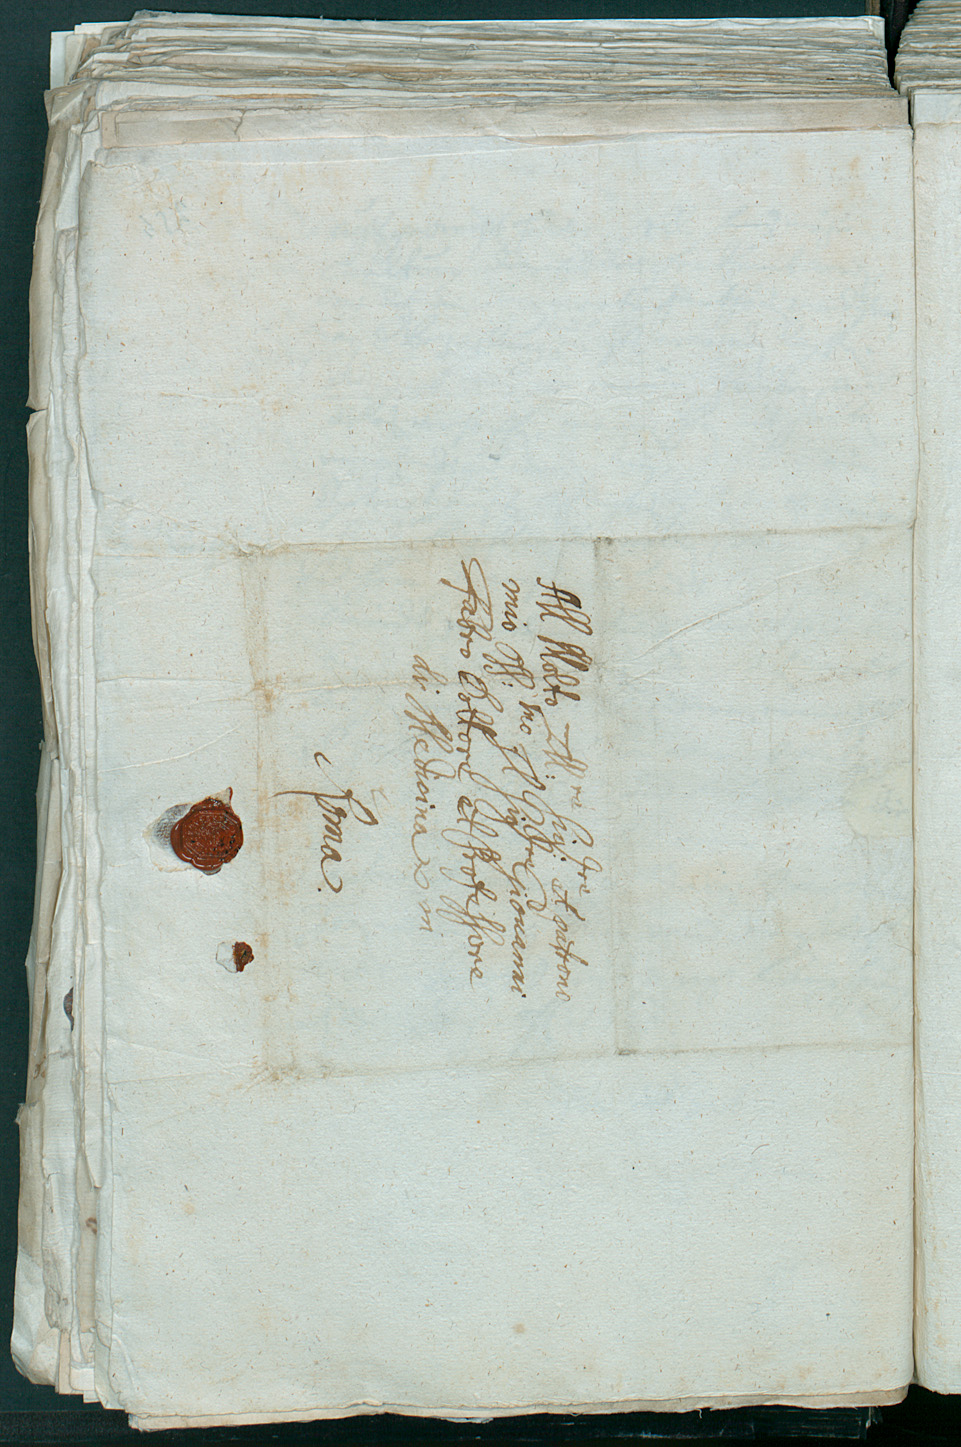 All Molto Ill.re Sig.re et patrone
mio Oss.mo Il Sig.re Giouanni
Fabro Dottore et professore
di Medicina in
Roma.